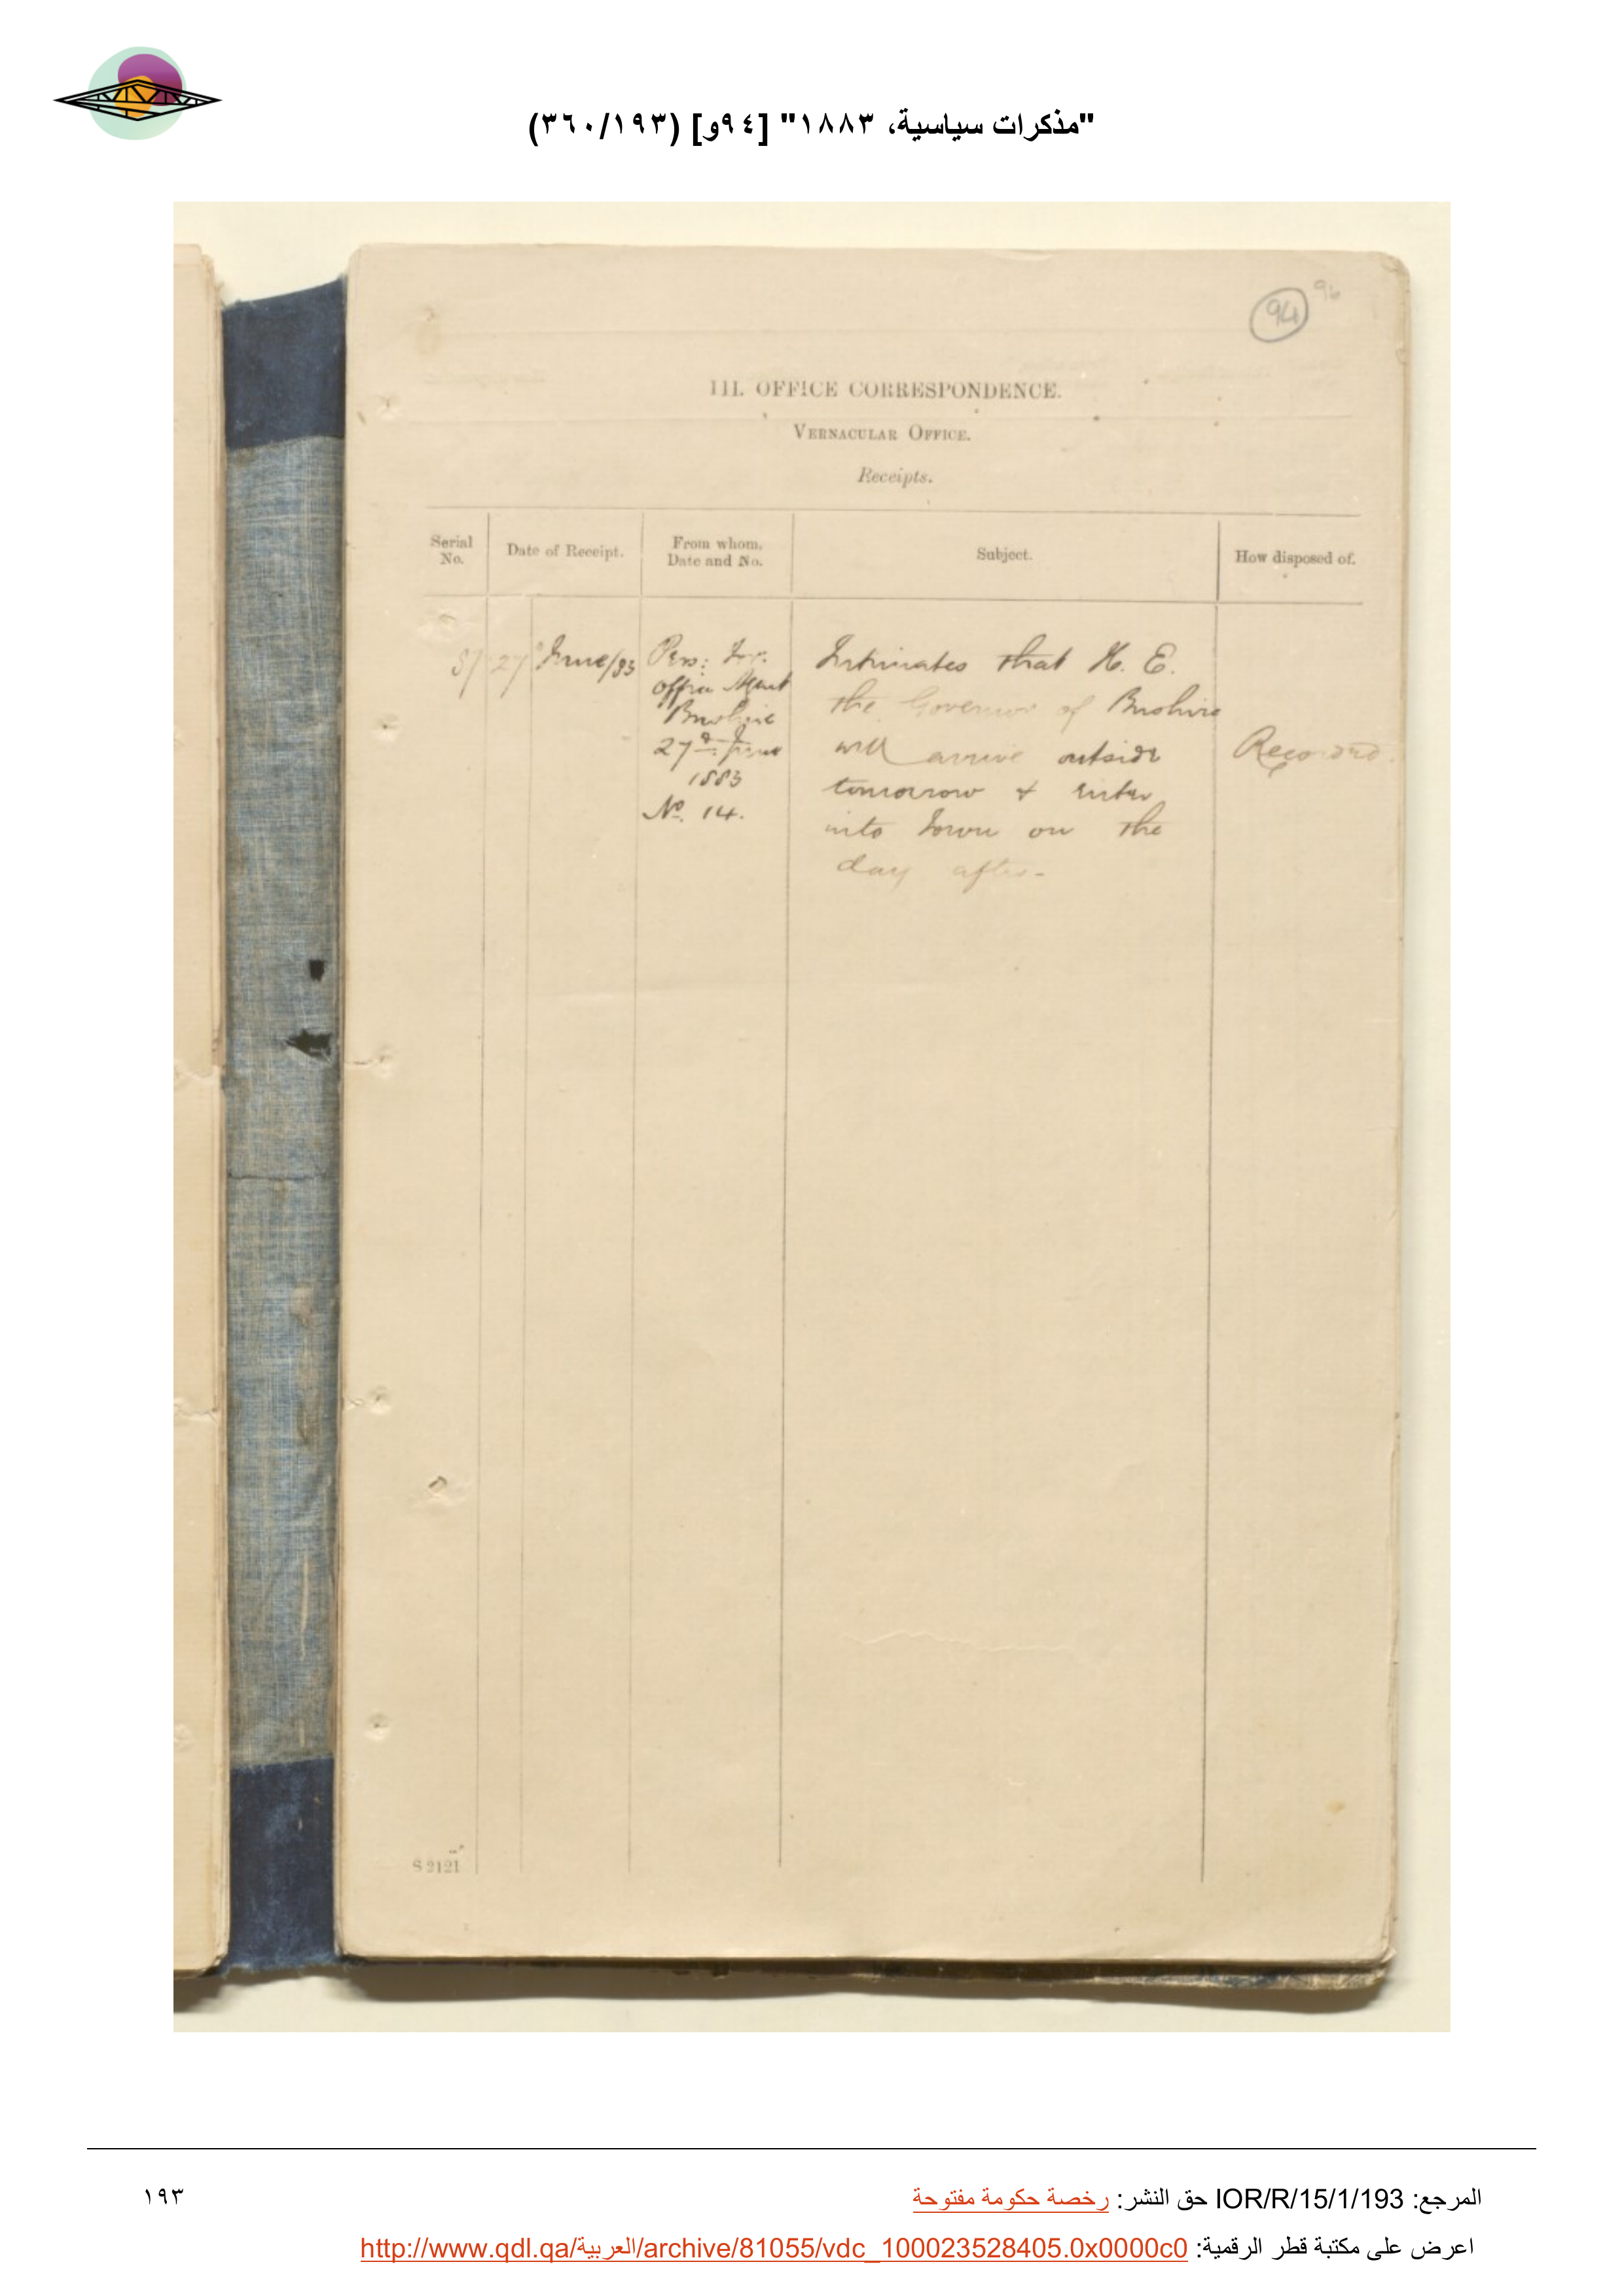 "مذكرات سياسية، ١٨٨٣" [٩٤و] (٣٦٠/١٩٣)
94 96
III. OFFICE CORRESPONDENCE.
VERNACULAR OFFICE.
Receipts.
Serial No.
Date of Receipt.
From whom. Date and No.
Subject.
How disposed of.
27 June/83
Pers: For:
office Agent
Bushire
27th June
1883
No. 14.
Intimates that H. E.
the Governor of Bushire
will arrive outside
tomorrow & enter
into town on the
day after-
Recorded.
S 2121
المرجع: IOR/R/15/1/193 حق النشر: رخصة حكومة مفتوحة
١٩٣
اعرض على مكتبة قطر الرقمية: http://www.qdl.qa/العربية/archive/81055/vdc_100023528405.0x0000c0